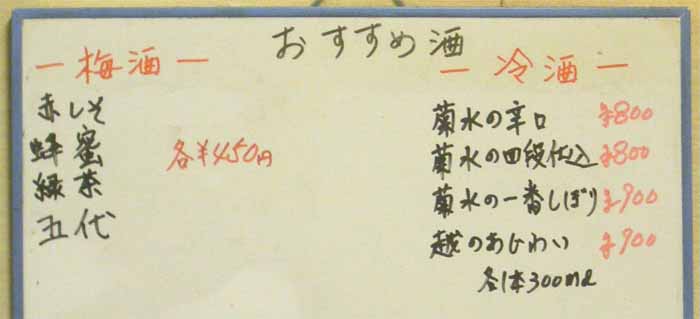 おすすめ酒
ー梅酒ー
赤しそ
蜂蜜
緑茶
五代
各¥450円
ー冷酒ー
菊水の辛口 ¥800
菊水の四段仕込 ¥800
菊水の一番しぼり ¥900
越のあじわい ¥900
各1本300ml